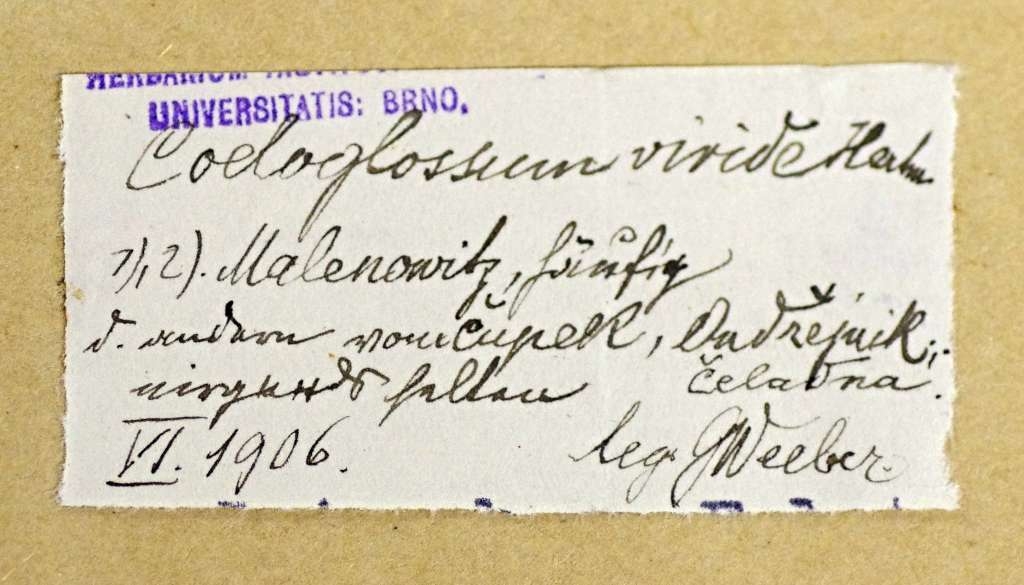 HERBARIUM
UNIVERSITATIS: BRNO.
Coeloglossum viride Hartm
1), 2). Malenowitz, häufig
d. andern vom Čupek, Ondřejnik,
nirgends selten Čeladna.
VI. 1906.
leg. GWeeber